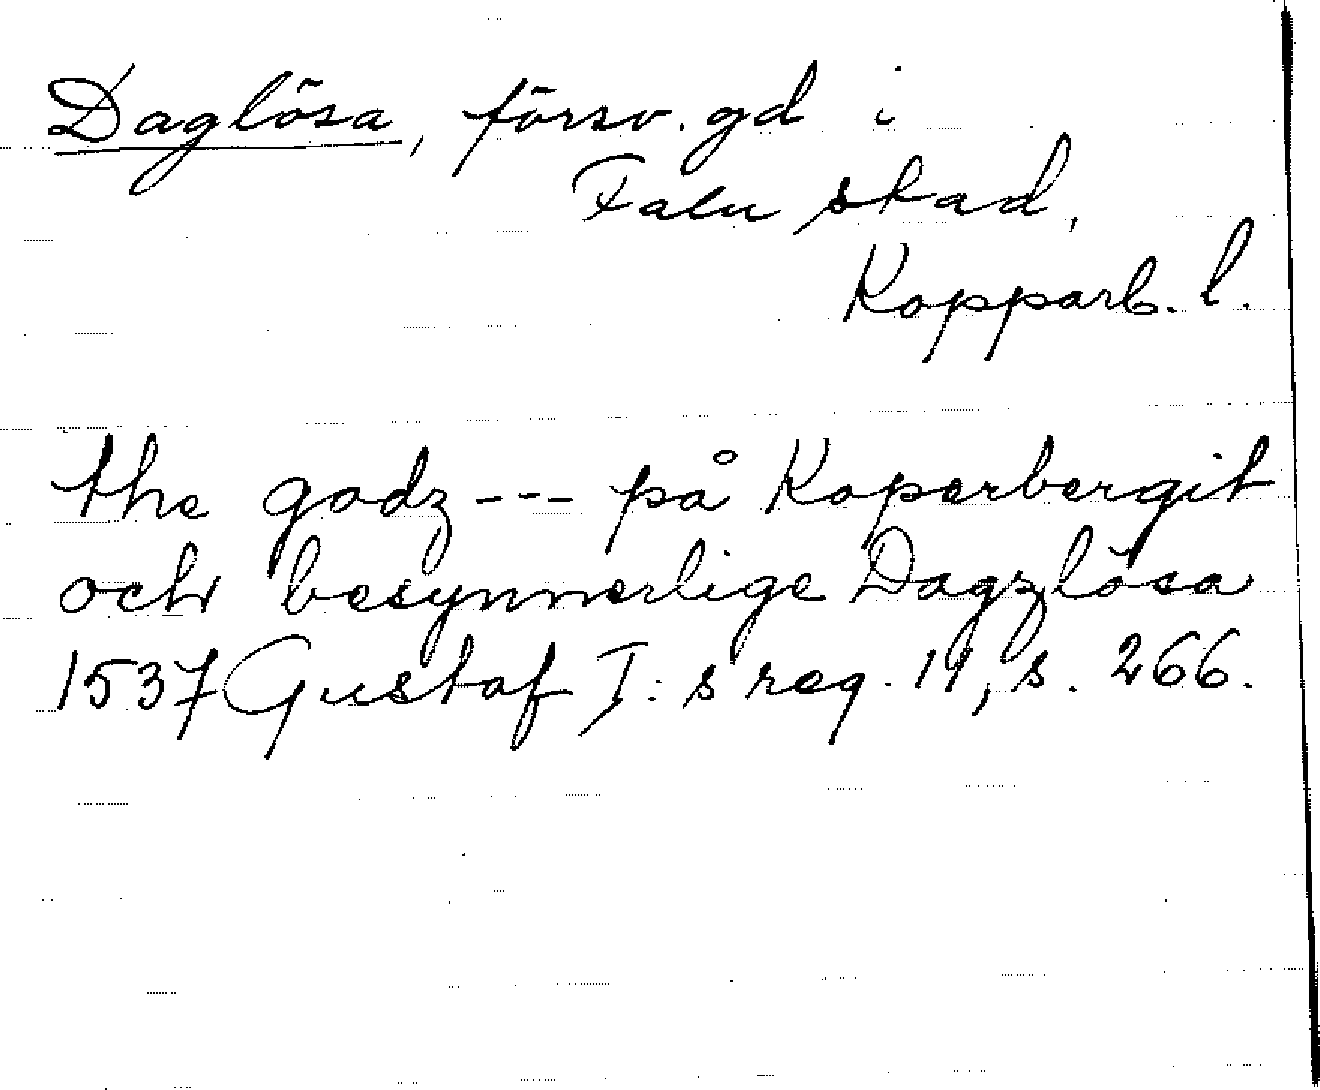 Daglösa, försv. gd i
Falu stad,
Kopparb. l.
the godz --- på Koperbergit
och besynnerlige Dagzlösa
1537 Gustaf I: s reg. 11, s. 266.